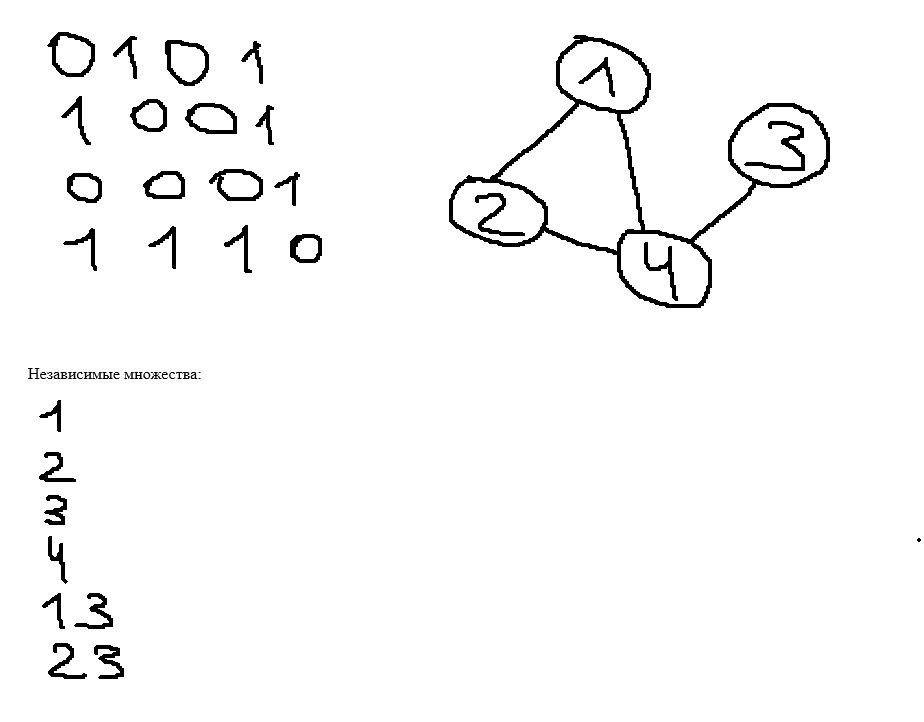 0 1 0 1
1 0 0 1
0 0 0 1
1 1 1 0
1
2
3
4
Независимые множества:
1
2
3
4
13
23